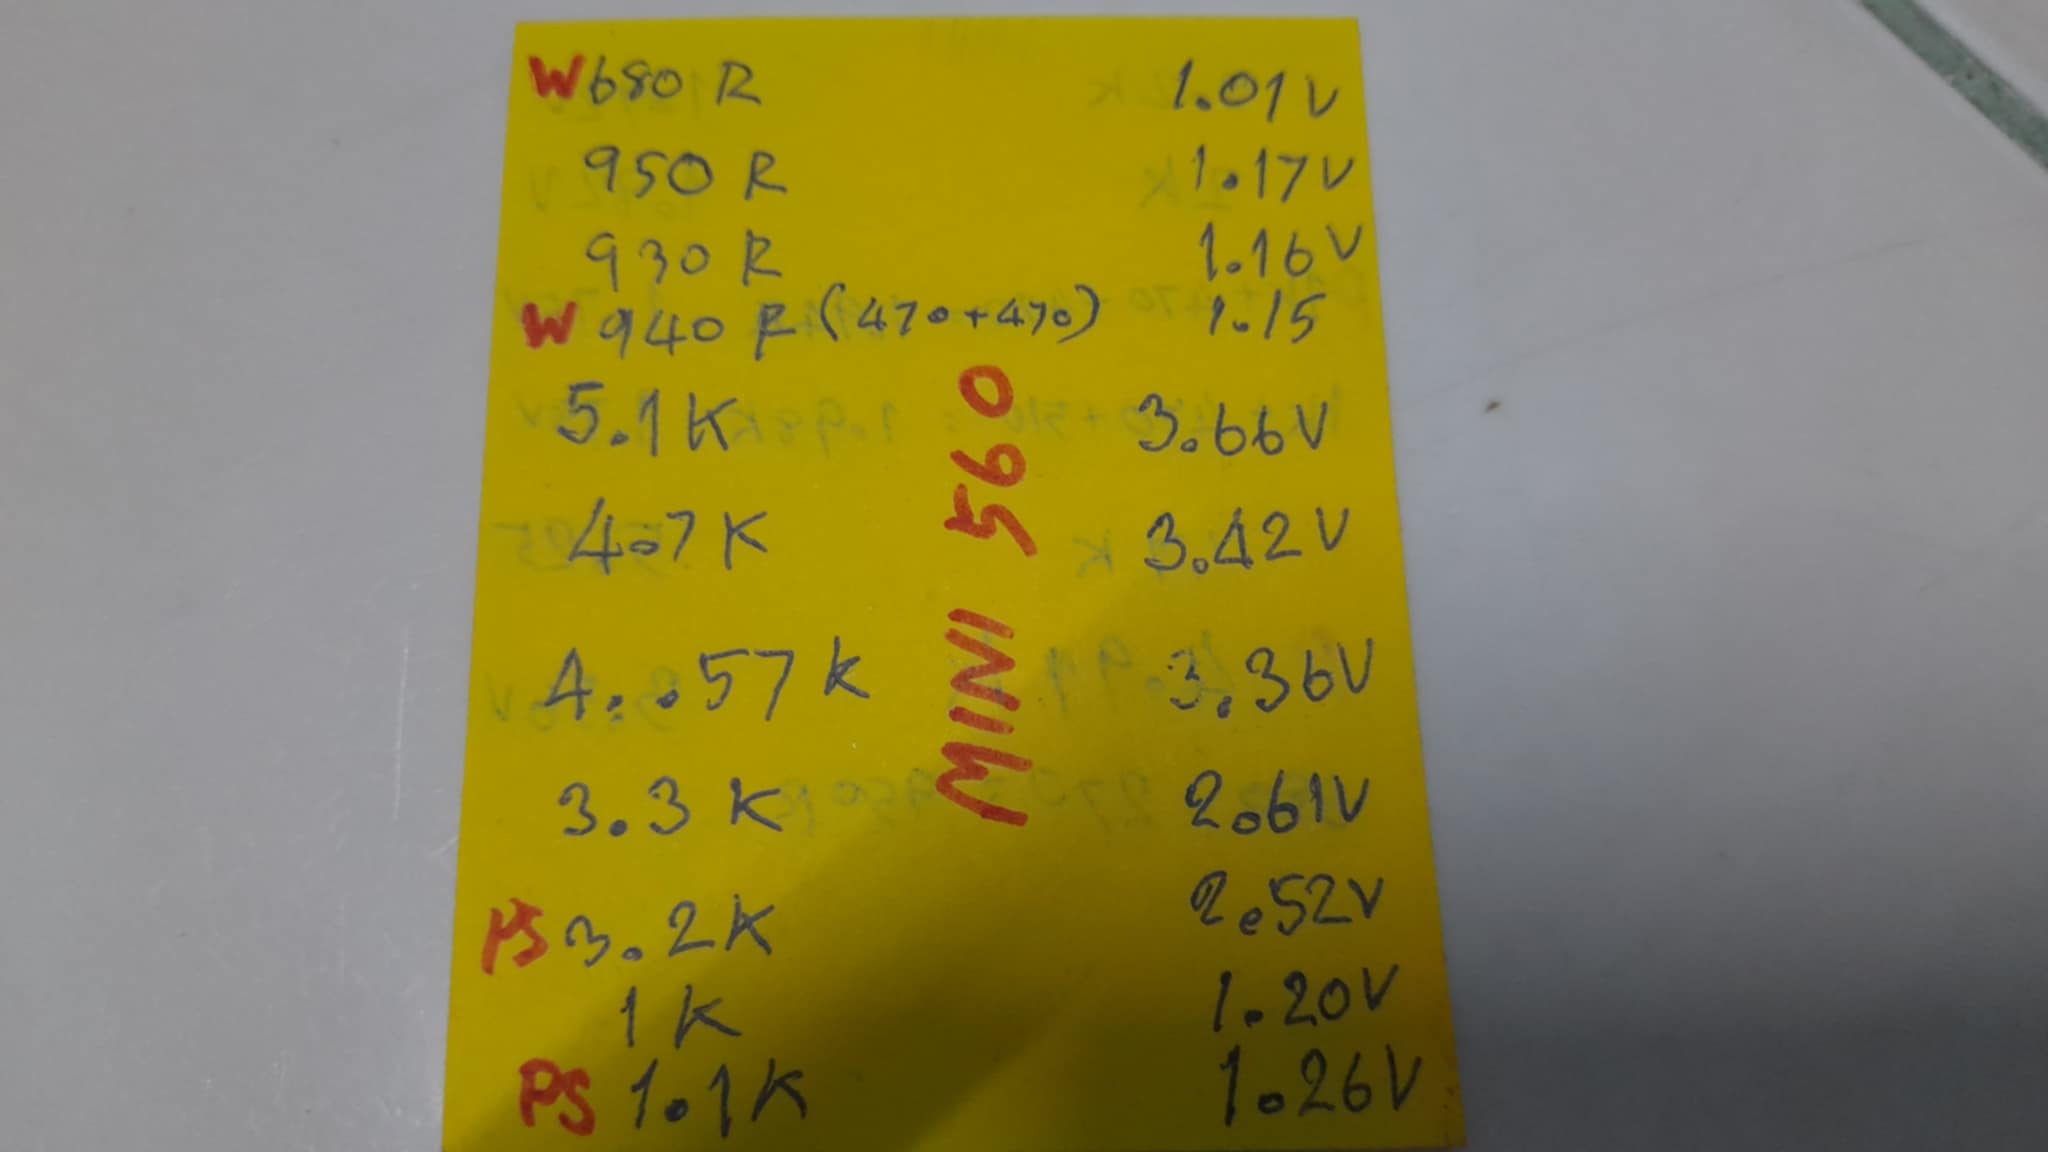 W 680 R 1.01 V
950 R 1.17 V
930 R 1.16 V
W 940 R (470+470) 1.15
5.1 K 3.66 V
4.7 K 3.42 V
4..57 K 3.36 V
3.3 K 2.61 V
PS 3.2 K 2.52 V
1 K 1.20 V
PS 1.1 K 1.26 V
MINI 560